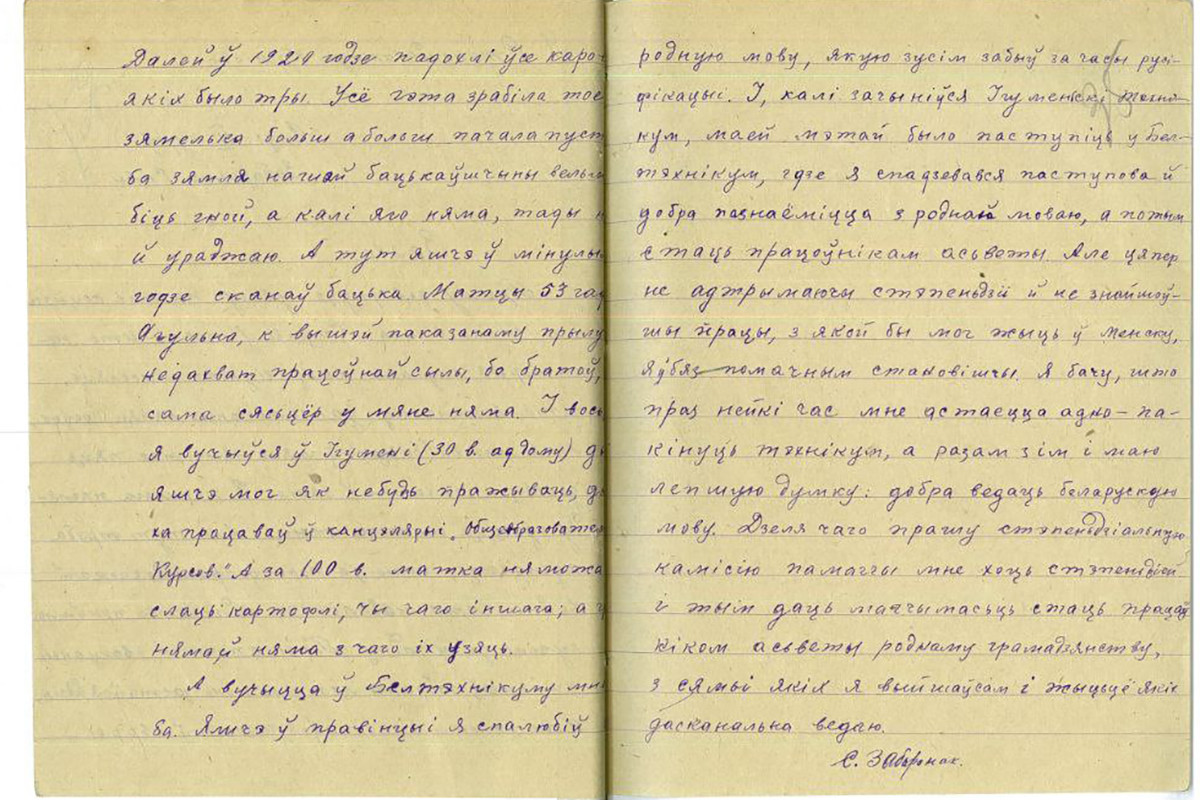 Далей ў 1921 годзе падохлі ўсе каро
якіх было тры. Усё гэта зрабіла тое
зямелька больш а больш пачала пуст
ба зямля нашай бацькаўшчыны вельм
біць гной, а калі яго няма, тады н
й ураджаю. А тут яшчэ ў мінулы
годзе сканаў бацька. Матцы 53 гад
Агульна, к вышэй паказанаму прылу
недахват працоўнай сылы, бо братоў,
сама сясьцёр у мяне няма. І вось
я вучыўся ў Ігумені (30 в. ад дому) ды
яшчэ мог як небудзь пражываць, ды
ха працаваў ў канцэлярыі „Общеобразовател
Курсов." А за 100 в. матка ня можа
слаць картофлі, чы чаго іншага; а г
нямаў няма з чаго іх узяць.
А вучыцца ў Белтэхнікуму мне
ба. Яшчэ ў правінцыі я спалюбіў
родную мову, якую зусім забыў за часы русі-
фікацыі. І, калі зачыніўся Ігуменскі тэхні-
кум, маей мэтай было паступіць у Бел-
тэхнікум, гдзе я спадзевався паступова й
добра пазнаёміцца з роднай моваю, а потым
стаць працоўнікам асьветы. Але цяпер
не адтрымаючы стэпендзіі й не знайшоў-
шы працы, з якой бы мог жыць ў Менску,
я ў бязпомачным становішчы. Я бачу, што
праз нейкі час мне астаецца адно - па-
кінуць тэхнікум, а разам з ім і маю
лепшую думку: добра ведаць беларускую
мову. Дзеля чаго прашу стэпендзіальную
камісію памагчы мне хоць стэпендзіей
і тым даць магчымасьць стаць працаў
ніком асьветы роднаму грамадзянству,
з сямьі якіх я выйшаў сам і жыцьцё якіх
дасканальна ведаю.
С. Забронак.